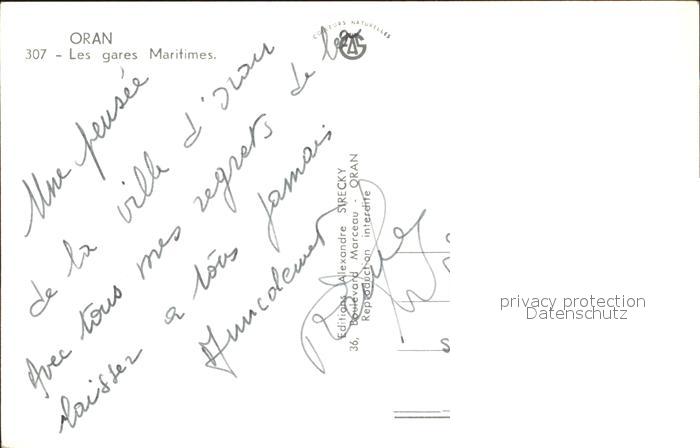 ORAN
307 - Les gares Maritimes.
COULEURS NATURELLES
Une pensée
de la ville d'oran
Avec tous mes regrets de la
laisser a tous jamais
Amicalement
Editions Alexandre SIRECKY
36, Boulevard Marceau - ORAN
Reproduction interdite
privacy protection
Datenschutz